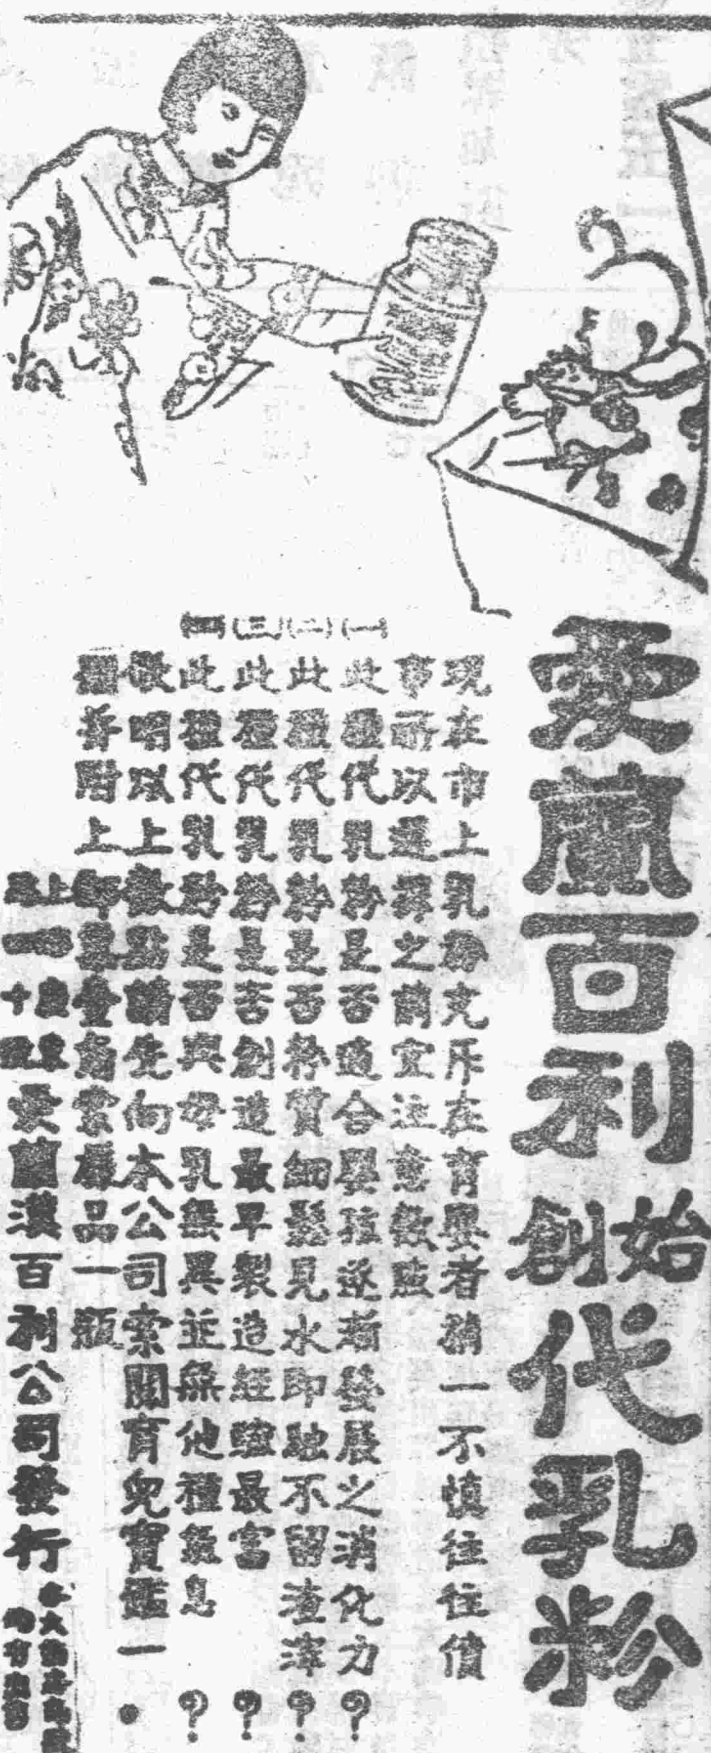 愛蘭百利始創代乳粉
現在市上乳粉充斥在育嬰者稍一不慎往往僨
事所以選擇之前宜注意數點
(一)此種代乳粉是否適合嬰孩逐漸發展之消化力?
(二)此種代乳粉是否粉質細鬆見水即融不留渣滓?
(三)此種代乳粉是否創造最早製造經驗最富?
(四)此種代乳粉是否與母乳無異並無他種氣息?
欲明以上數點請先向本公司索閱育兒寶鑑一.
并附上郵票壹角索樣品一瓶
上海
愛蘭漢百利公司發行